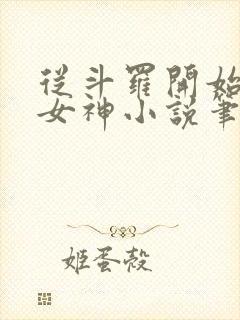 從斗羅開始
女神小說筆
姬蛋殼